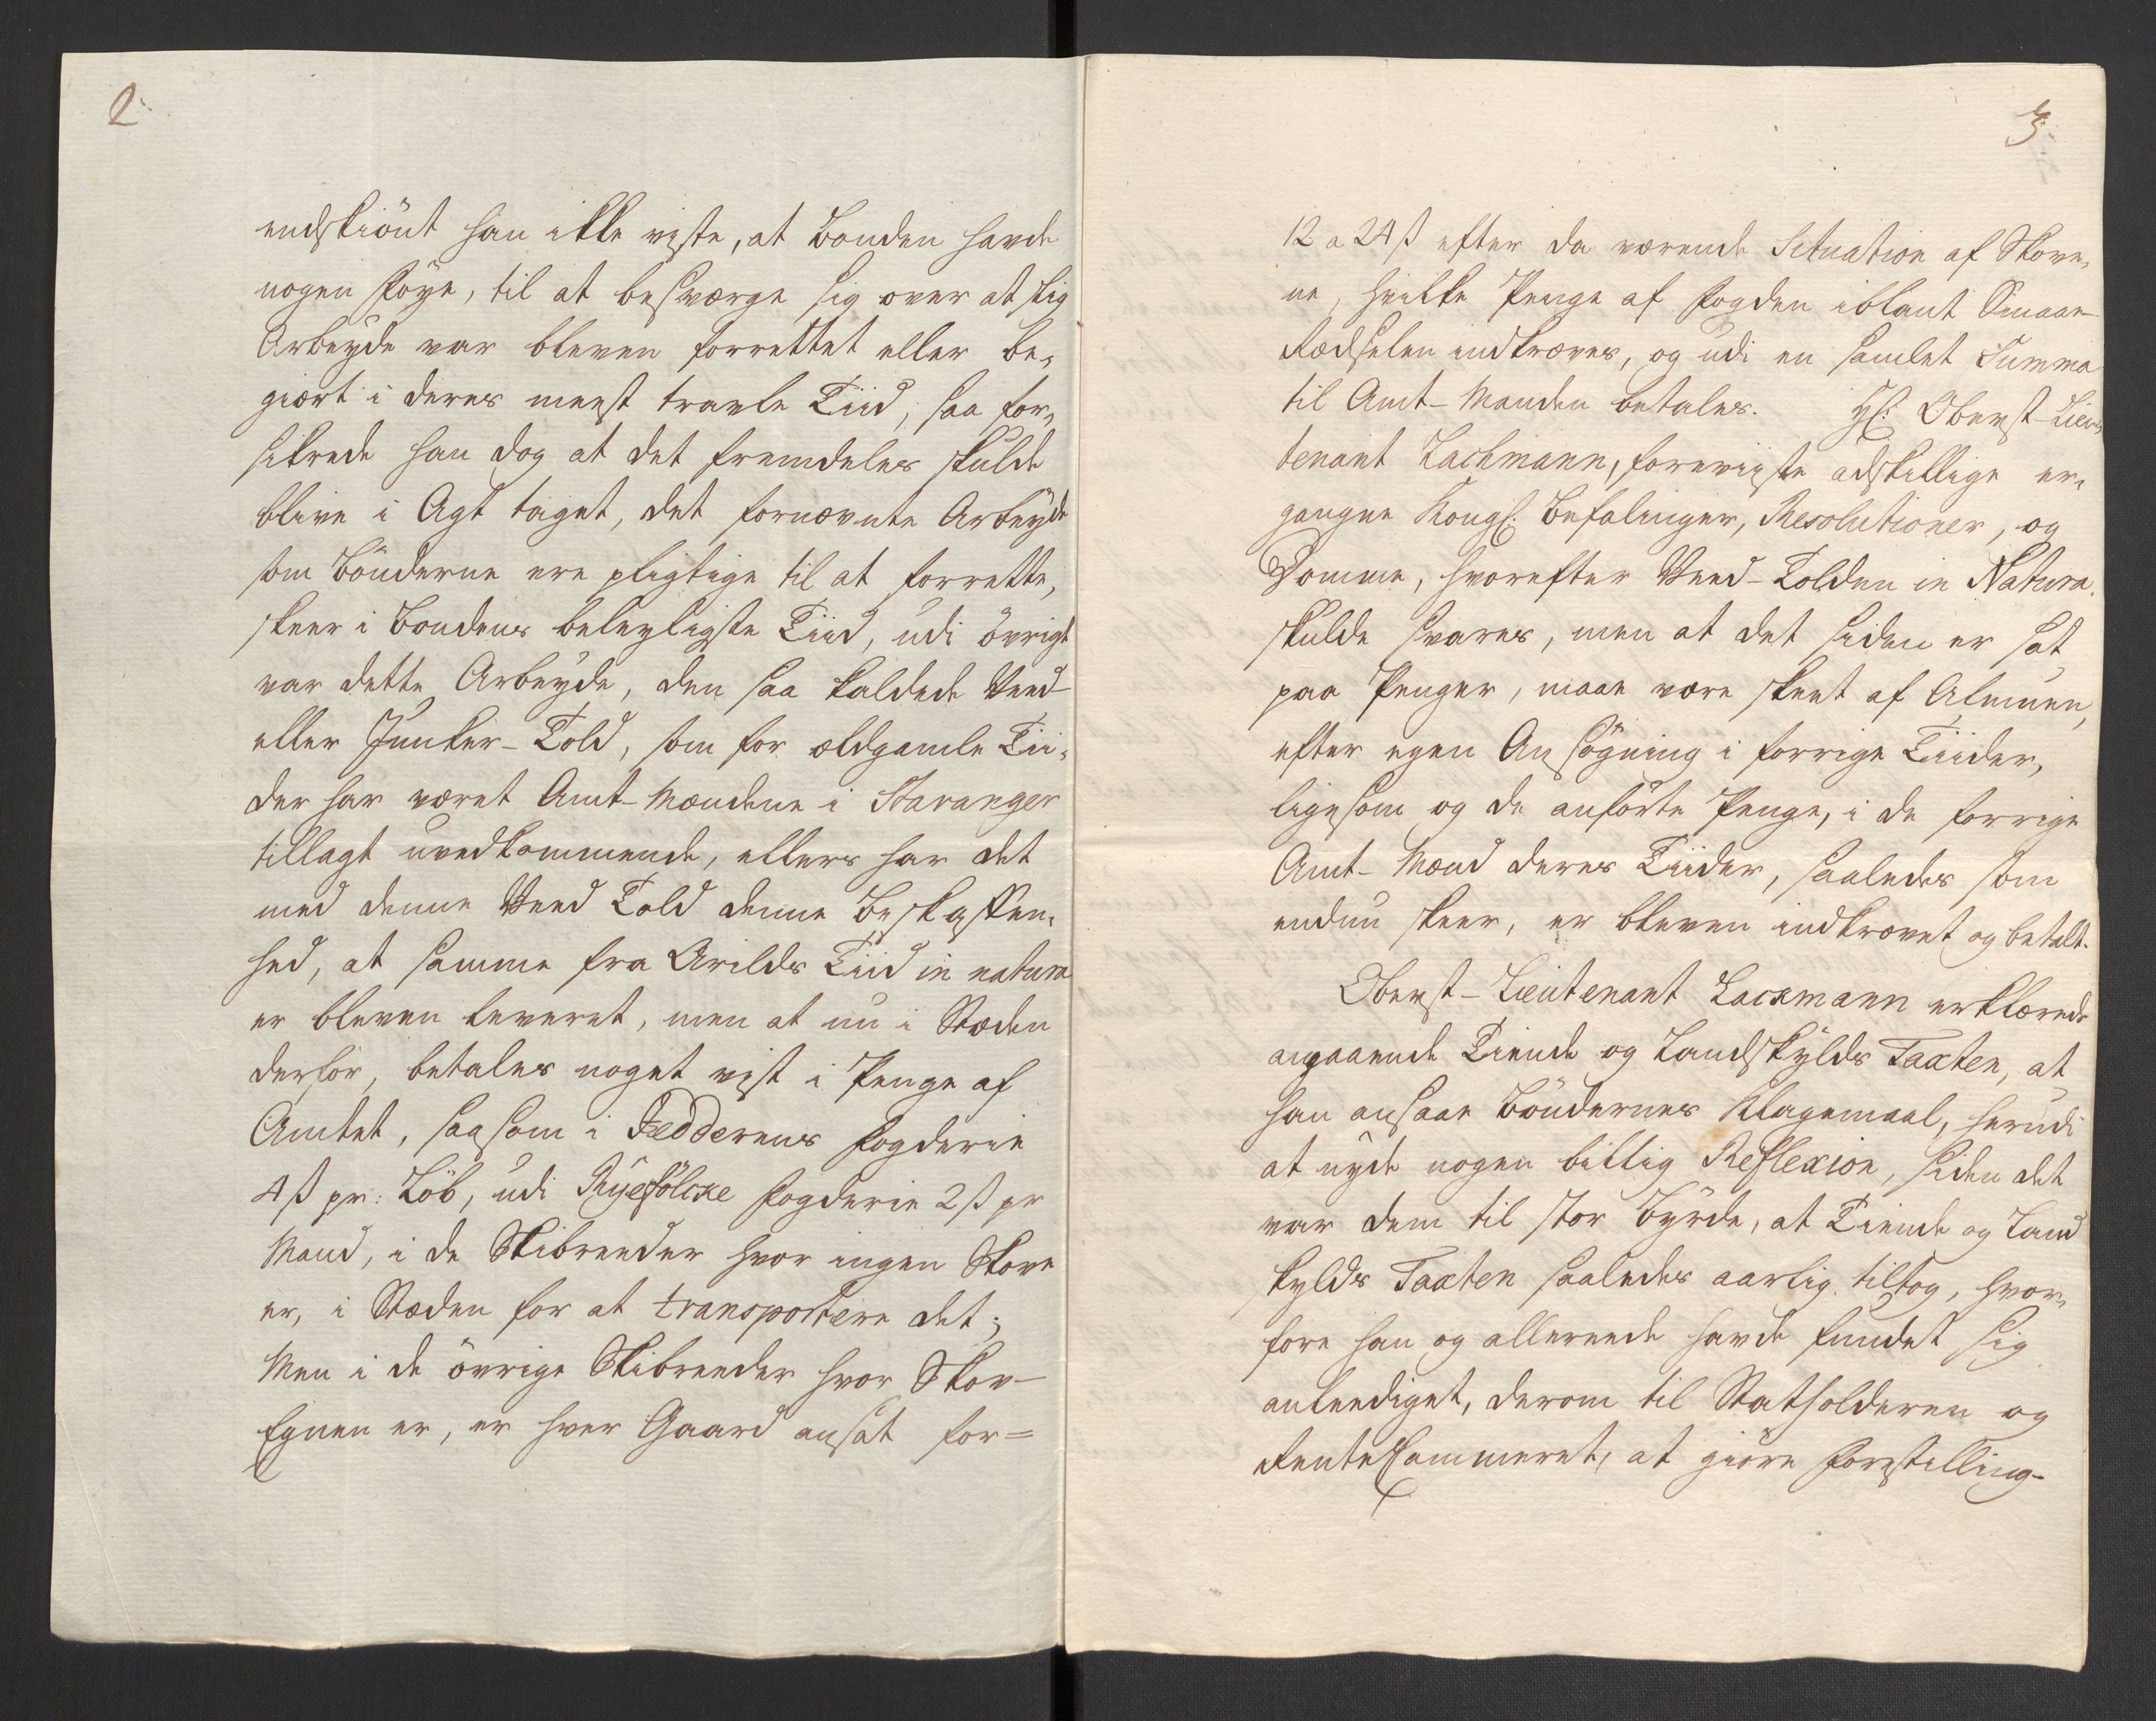 2.
endskiönt han ikke viste, at Bonden havde
nogen Föye, til at besværge sig over at slig
Arbeyde var bleven forrettet eller be„
giært i deres meest travle Tiid, saa for„
sikrede han dog at det fremdeles skulde
blive i Agt taget, det fornævnte Arbeyde
som Bönderne ere pligtige til at forrette,
skeer i Bondens beleyligste Tiid, udi övrigt
var dette Arbeyde, den saa kaldede Veed-
eller Junker-Told, som for ældgamle Tii„
der har været Amt-Mændene i Stavanger
tillagt uvedkommende, ellers har det
med denne Veed Told denne Beskaffen„
hed, at samme fra Arilds Tiid in natura
er bleven leveret, men at nu i Stæden
derfor, betales noget vist i Penge af
Amtet, saasom i Jedderens Fogderie
4 ß pr: Löb, udi Ryefölcke Fogderie 2 ß pr
Mand, i de Skibreeder hvor ingen Skove
er, i Stæden for at transportere det;
Men i de övrige Skibreeder hvor Skov-
Egnen er, er hver Gaard ansat for=
3.
12 a 24 ß efter da værende Situation af Skove„
ne, hvilke Penge af Fogden iblant Smaae-
Rædselen indkræves, og udi en samlet Summa
til Amt-Manden betales. Hr: Oberst-Lieu„
tenant Lachmann, foreviiste adskillige er„
gangne Kongl: Befalinger, Resolutioner, og
Domme, hvorefter Veed-Tolden in Natura.
skulde svares, men at det siden er sat
paa Penger, maae være skeet af Almuen,
efter egen Ansögning i forrige Tiider,
ligesom og de anförte Penge, i de forrige
Amt-Mænd deres Tiider, saaledes som
endnu skeer, er bleven indkrævet og betalt.
Oberst-Lieutenant Lackmann erklærede
angaaende Tiende og Landskylds Taxten, at
han ansaae Böndernes Klagemaal, herudi
at nyde nogen billig Reflexion, siden det
var dem til stor Byrde, at Tiende og Land
skylds Taxten saaledes aarlig tiltog, hvor„
fore han og allereede havde fundet sig
anleediget, derom til Statholderen og
RenteCammeret, at giöre Forestilling-